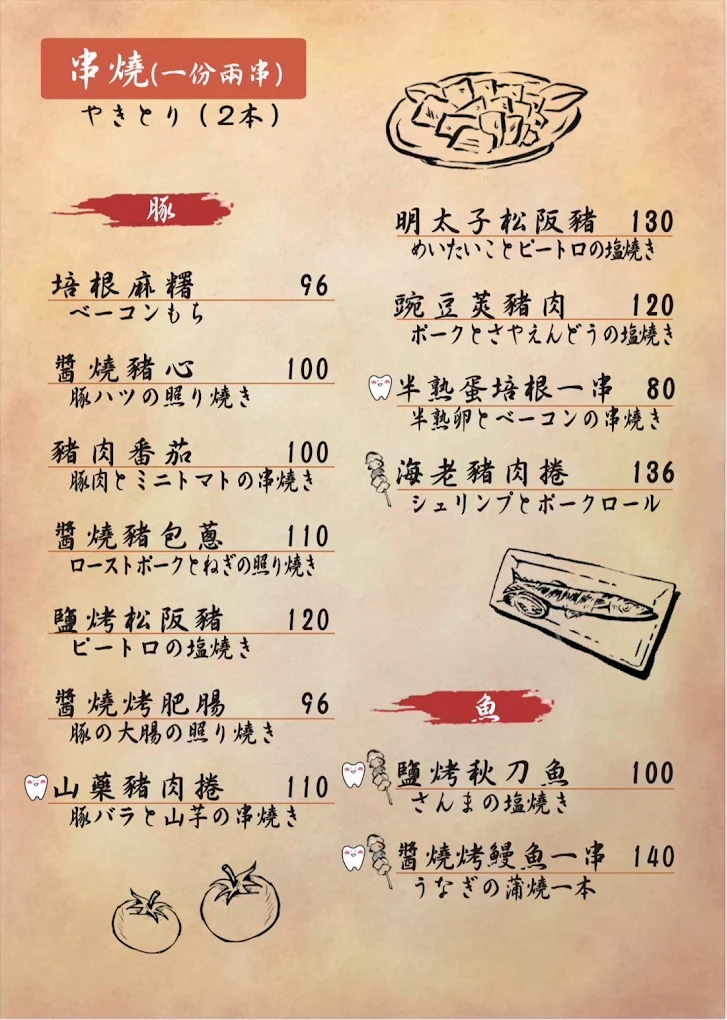 串燒(一份兩串)
やきとり(2本)
豚
培根麻糬 96
ベーコンもち
醬燒豬心 100
豚ハツの照り焼き
豬肉番茄 100
豚肉とミニトマトの串焼き
醬燒豬包蔥 110
ローストポークとねぎの照り焼き
鹽烤松阪豬 120
ピートロの塩焼き
醬燒烤肥腸 96
豚の大腸の照り焼き
山藥豬肉捲 110
豚バラと山芋の串焼き
明太子松阪豬 130
めいたいことピートロの塩焼き
豌豆莢豬肉 120
ポークとさやえんどうの塩焼き
半熟蛋培根一串 80
半熟卵とベーコンの串焼き
海老豬肉捲 136
シュリンプとポークロール
魚
鹽烤秋刀魚 100
さんまの塩焼き
醬燒烤鰻魚一串 140
うなぎの蒲焼一本